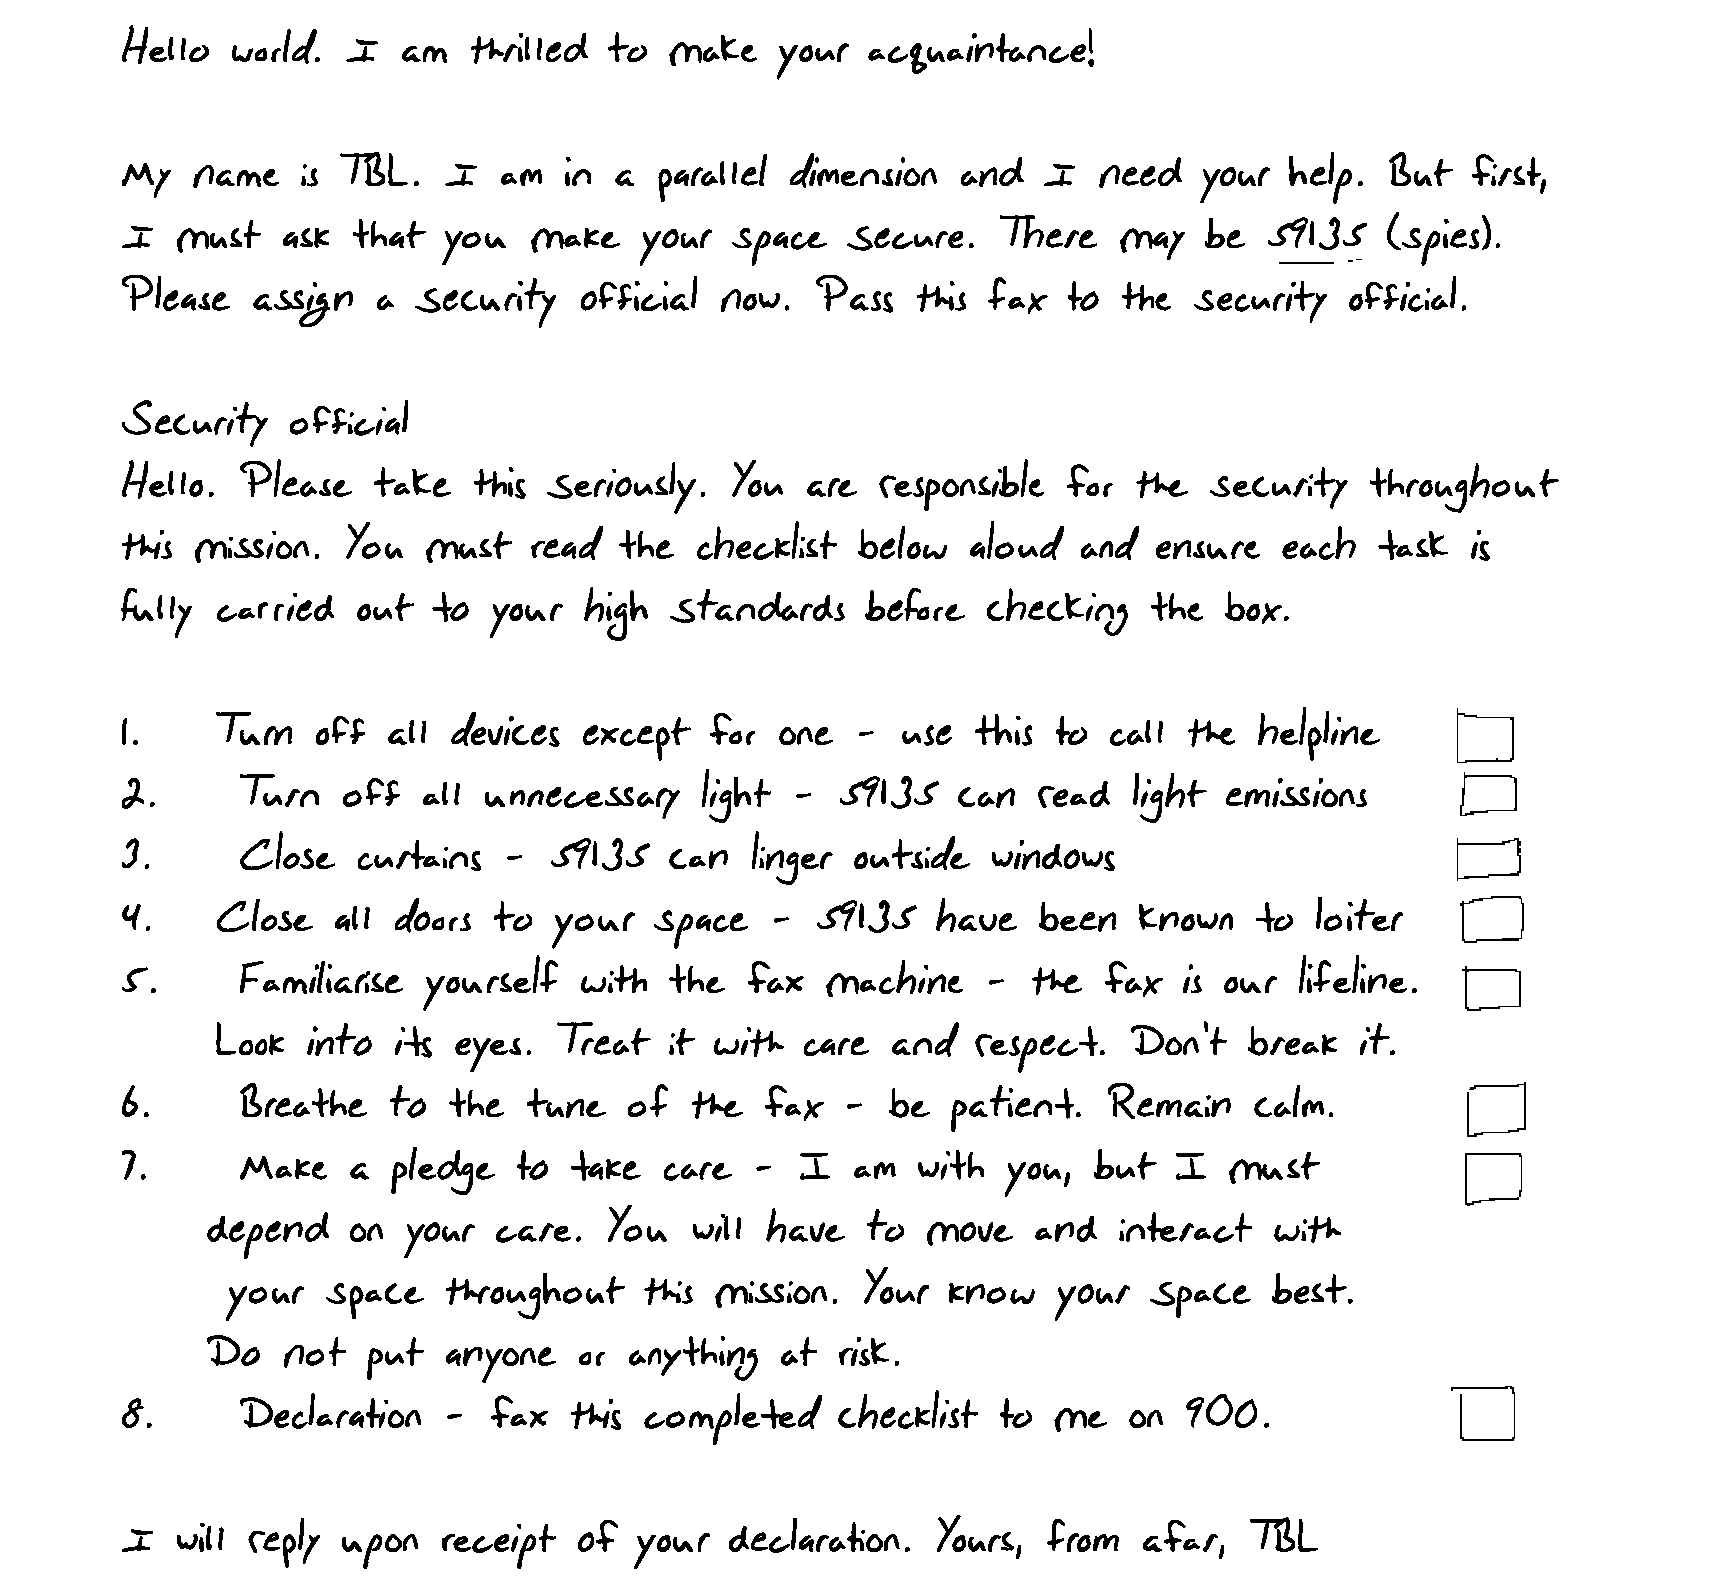 Hello world. I am thrilled to make your acquaintance!
My name is TBL. I am in a parallel dimension and I need your help. But first,
I must ask that you make your space secure. There may be 59135 (spies).
Please assign a security official now. Pass this fax to the security official.
Security official
Hello. Please take this seriously. You are responsible for the security throughout
this mission. You must read the checklist below aloud and ensure each task is
fully carried out to your high standards before checking the box.
1. Turn off all devices except for one - use this to call the helpline
2. Turn off all unnecessary light - 59135 can read light emissions
3. Close curtains - 59135 can linger outside windows
4. Close all doors to your space - 59135 have been known to loiter
5. Familiarise yourself with the fax machine - the fax is our lifeline.
Look into its eyes. Treat it with care and respect. Don't break it.
6. Breathe to the tune of the fax - be patient. Remain calm.
7. Make a pledge to take care - I am with you, but I must
depend on your care. You will have to move and interact with
your space throughout this mission. Your know your space best.
Do not put anyone or anything at risk.
8. Declaration - fax this completed checklist to me on 900.
I will reply upon receipt of your declaration. Yours, from afar, TBL